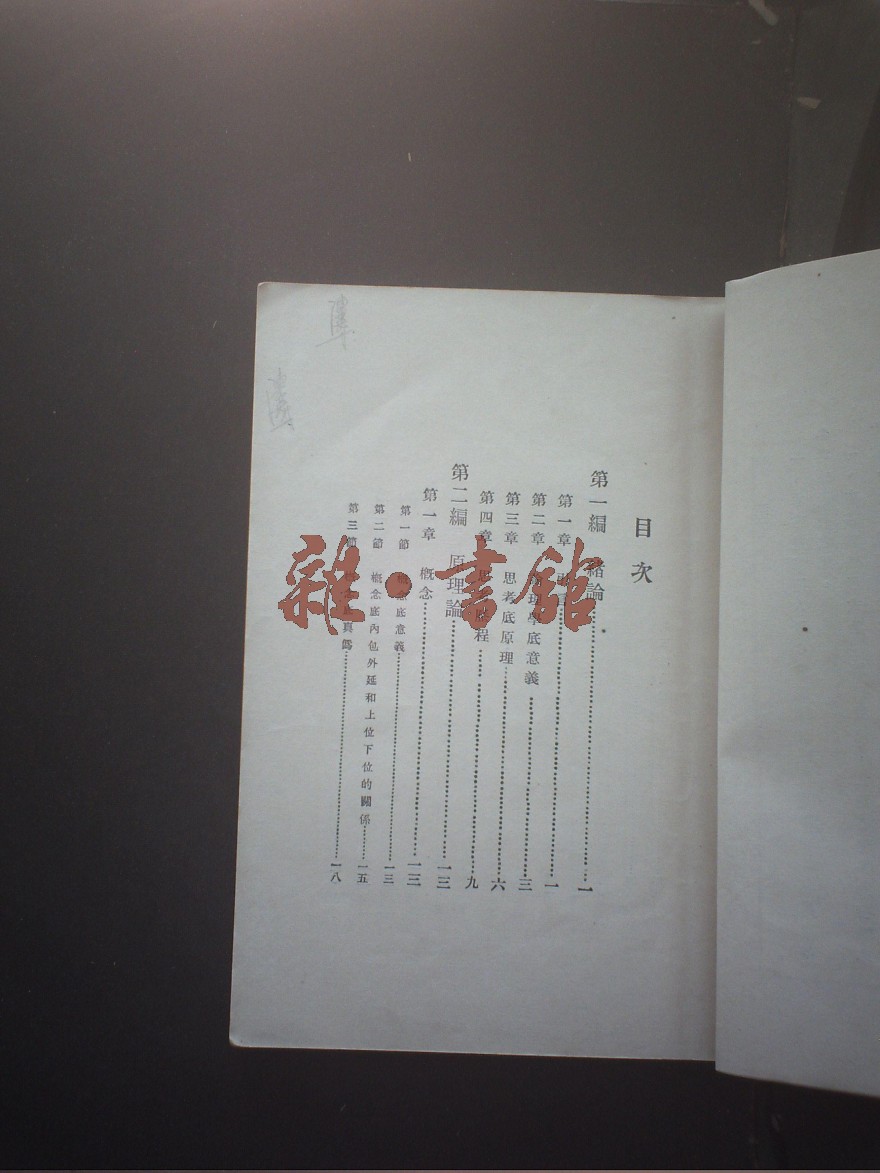 目次
第一編 緒論 一
第一章 一
第二章 理學底意義 三
第三章 思考底原理 六
第四章 思 程 九
第二編 原理論 一三
第一章 概念 一三
第一節 概念底意義 一三
第二節 概念底內包外延和上位下位的關係 一五
第三節 真僞 一八
雜·書館